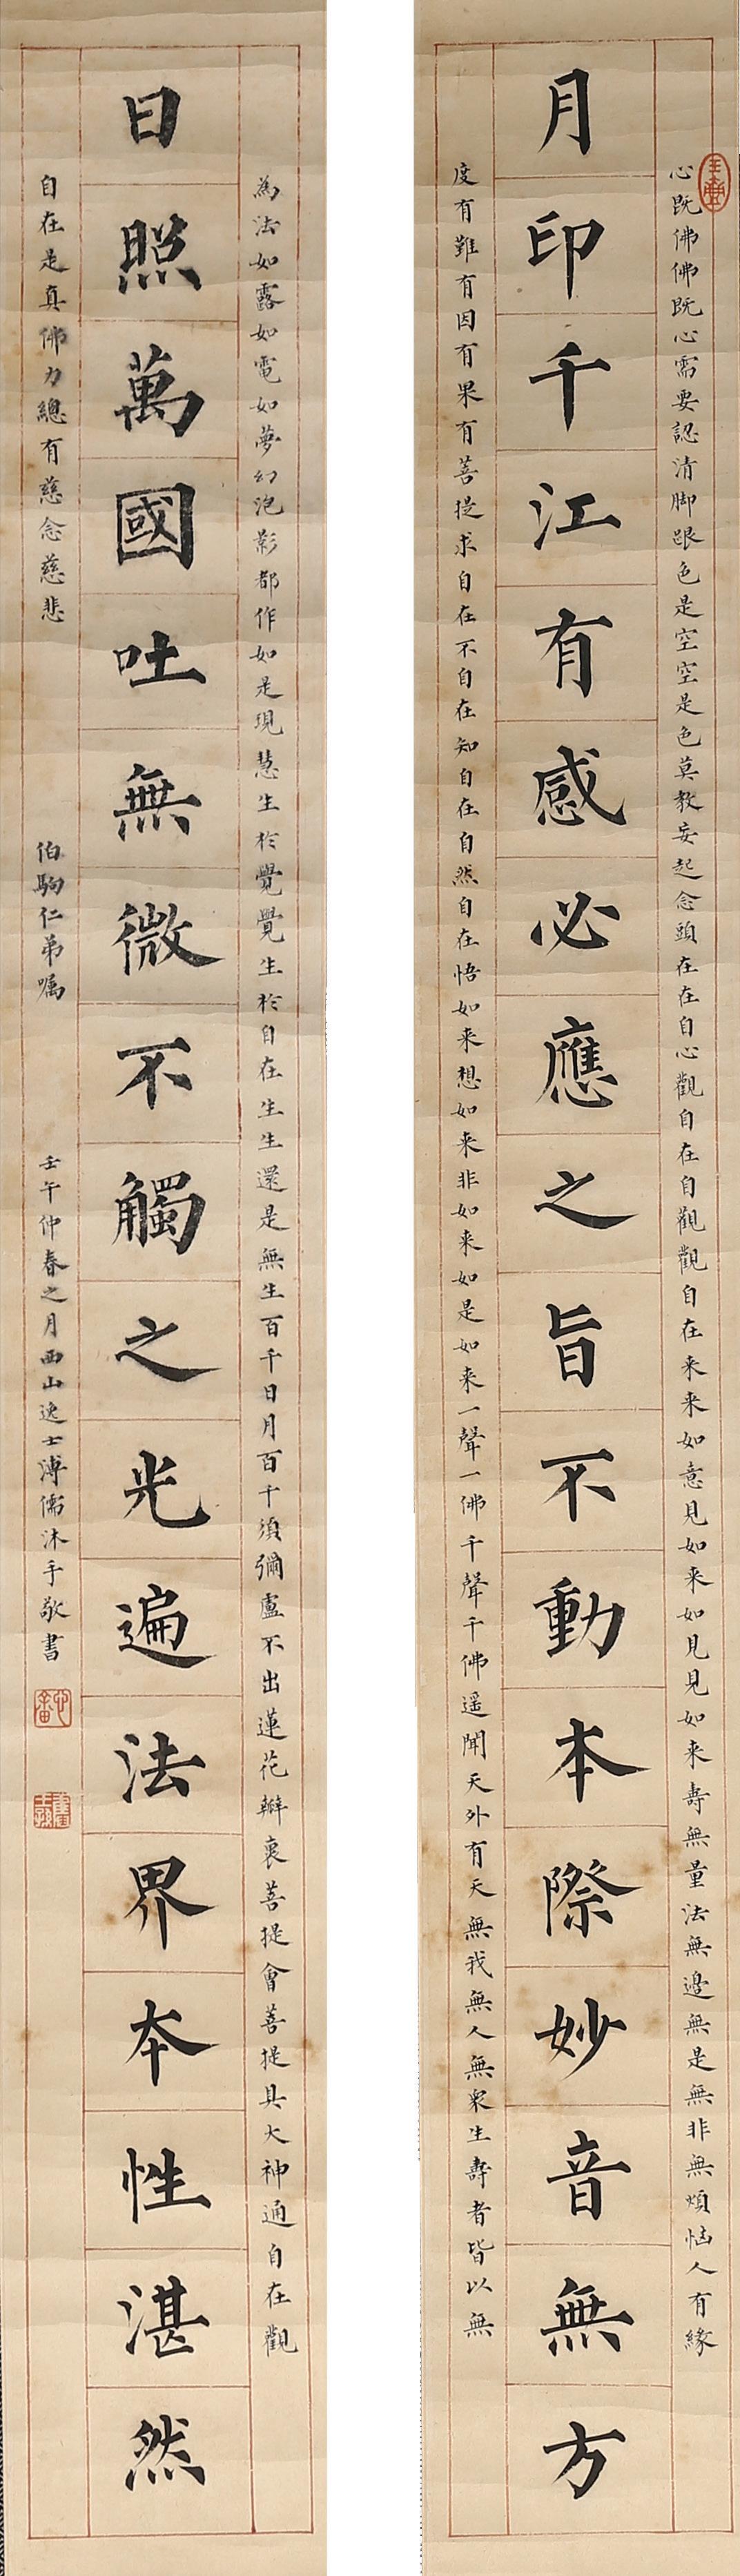 心既佛佛既心需要認清脚跟色是空空是色莫教妄起念頭在在自心觀自在自觀觀自在来来如意見如来如見見如来壽無量法無邊無是無非無煩惱人有緣
月印千江有感必應之旨不動本際妙音無方
度有難有因有果有菩提求自在不自在知自在自然自在悟如来想如来非如来如是如来一聲一佛千聲千佛遥聞天外有天無我無人無衆生壽者皆以無
為法如露如電如夢幻泡影都作如是現慧生於覺覺生於自在生生還是無生百千日月百千須彌盧不出蓮花瓣裏菩提會菩提具大神通自在觀
日照萬國吐無微不觸之光遍法界本性湛然
自在是真佛力總有慈念慈悲
伯駒仁弟嘱
壬午仲春之月西山逸士溥儒沐手敬書